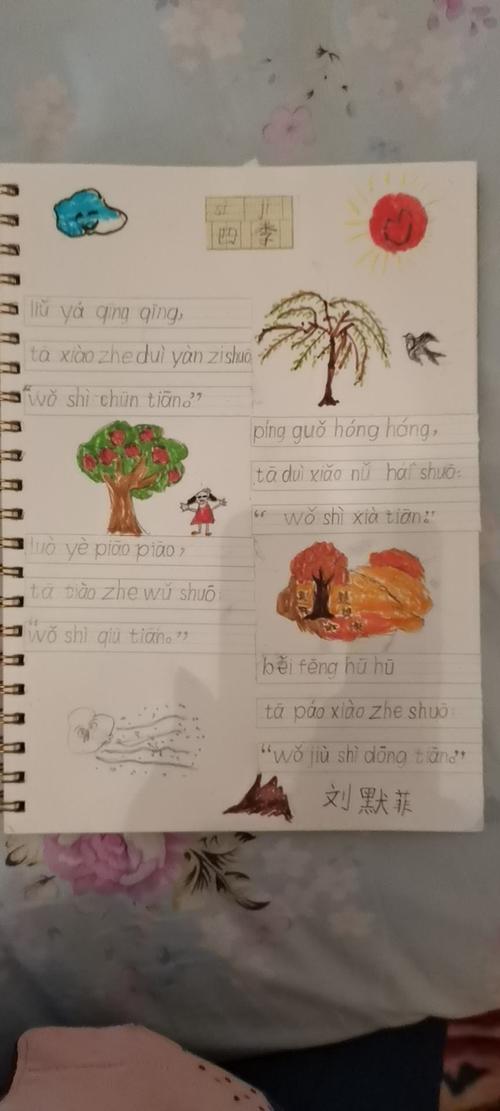 sì jì
四季
liǔ yá qīng qīng,
tā xiào zhe duì yàn zi shuō
“wǒ shì chūn tiān。”
píng guǒ hóng hóng,
tā duì xiǎo nǚ hái shuō:
“wǒ shì xià tiān.”
luò yè piāo piāo,
tā tiào zhe wǔ shuō
“wǒ shì qiū tiān。”
běi fēng hū hū
tā páo xiào zhe shuō:
“wǒ jiù shì dōng tiān。”
刘默菲